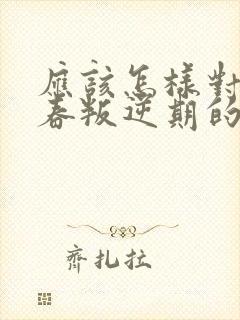 應該怎樣對
春叛逆期的
齊扎拉